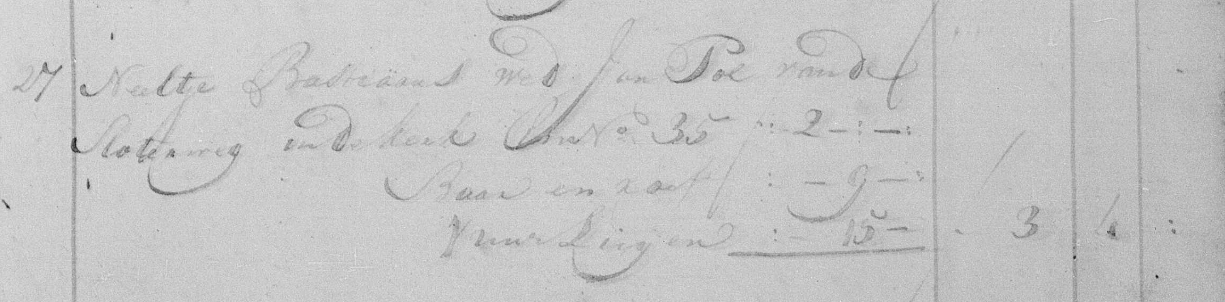 27 Neeltje Bastiaans wed Jan Pos vande
Slotenweg inde kerk No 35 : 2 - : - :
Baar en roef : - 9 - :
3 uur Luijen : - 15 - 3 4 :